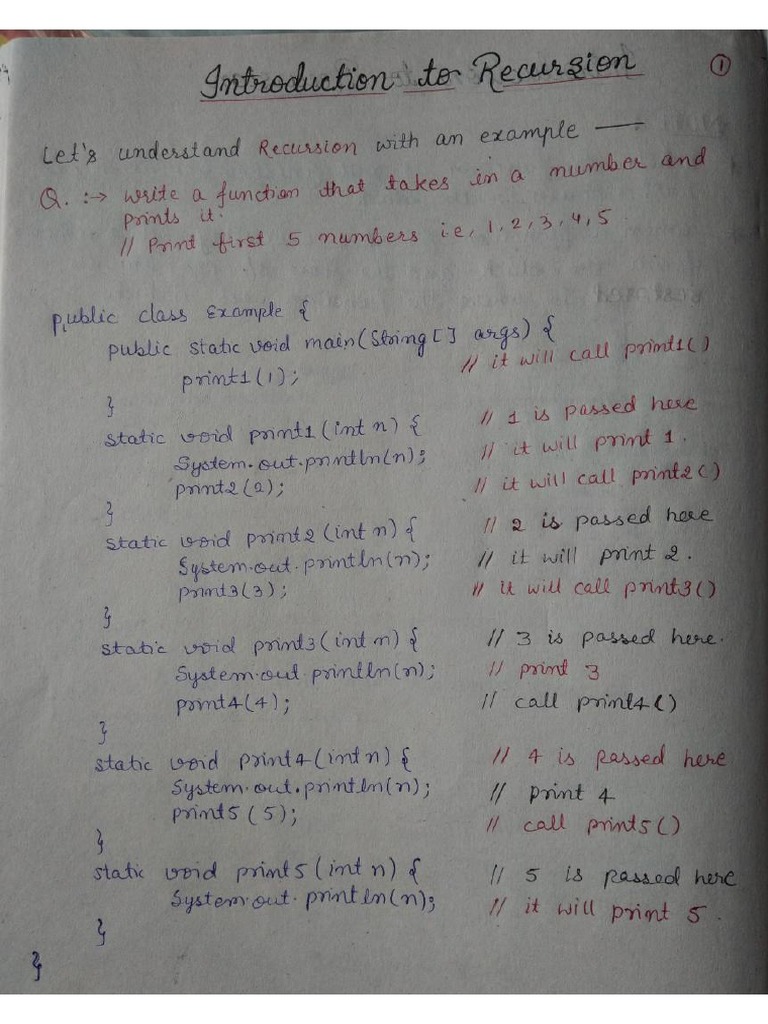 Introduction to Recursion ①
Let's understand Recursion with an example —
Q. :→ write a function that takes in a number and
prints it.
// Print first 5 numbers ie, 1, 2, 3, 4, 5
public class Example {
public static void main(String[] args) {
print1(1); // it will call print1()
}
static void print1(int n) { // 1 is passed here
System.out.println(n); // it will print 1.
print2(2); // it will call print2()
}
static void print2(int n) { // 2 is passed here
System.out.println(n); // it will print 2.
print3(3); // it will call print3()
}
static void print3(int n) { // 3 is passed here.
System.out.println(n); // print 3
print4(4); // call print4()
}
static void print4(int n) { // 4 is passed here
System.out.println(n); // print 4
print5(5); // call print5()
}
static void print5(int n) { // 5 is passed here
System.out.println(n); // it will print 5.
}
}